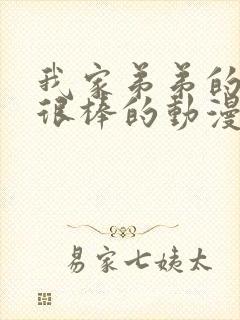 我家弟弟的
很棒的動漫
易家七姨太